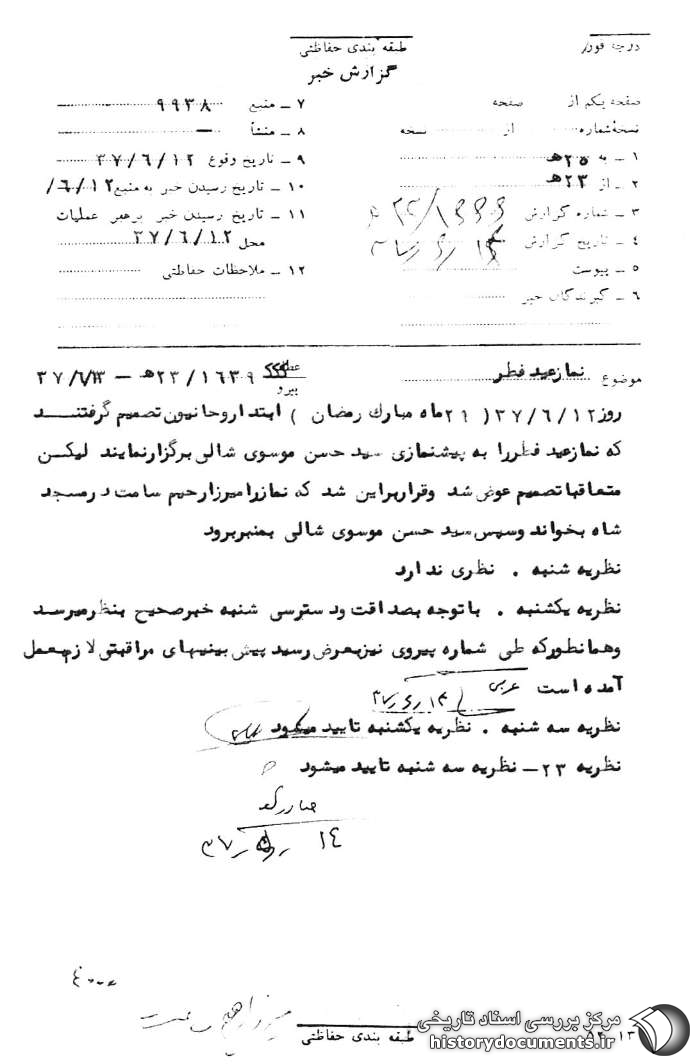 درجه فوریت
طبقه بندی حفاظتی
گزارش خبر
صفحه یکم از صفحه
نسخه شماره از نسخه
۱ - به ۲۵هـ
۲ - از ۲۳هـ
۳ - شماره گزارش
۴ - تاریخ گزارش
۵ - پیوست
۶ - گیرندگان خبر
۷ - منبع ۹۹۳۸
۸ - منشأ —
۹ - تاریخ وقوع ۳۷/۶/۱۲
۱۰ - تاریخ رسیدن خبر به منبع ۶/۱۲/
۱۱ - تاریخ رسیدن خبر برهبر عملیات
محل ۳۷/۶/۱۲
۱۲ - ملاحظات حفاظتی
موضوع نماز عید فطر
عطف
پیرو ۲۳/۱۶۳۹هـ – ۳۷/۶/۱۳
روز ۳۷/۶/۱۲ (۲۹ ماه مبارک رمضان) ابتدا روحانیون تصمیم گرفتند
که نماز عید فطر را به پیشنمازی سید حسن موسوی شالی برگزار نمایند لیکن
متعاقبا تصمیم عوض شد و قرار براین شد که نماز را میرزا رحیم سامت در مسجد
شاه بخواند و سپس سید حسن موسوی شالی بمنبر برود
نظریه شنبه . نظری ندارد
نظریه یکشنبه . با توجه بصداقت و دسترسی شنبه خبر صحیح بنظر میرسد
و همانطور که طی شماره پیروی نیز بعرض رسید پیش بینیهای مراقبتی لازم بعمل
آمده است
نظریه سه شنبه . نظریه یکشنبه تایید میشود
نظریه ۲۳ – نظریه سه شنبه تایید میشود
طبقه بندی حفاظتی
مرکز بررسی اسناد تاریخی
historydocuments.ir